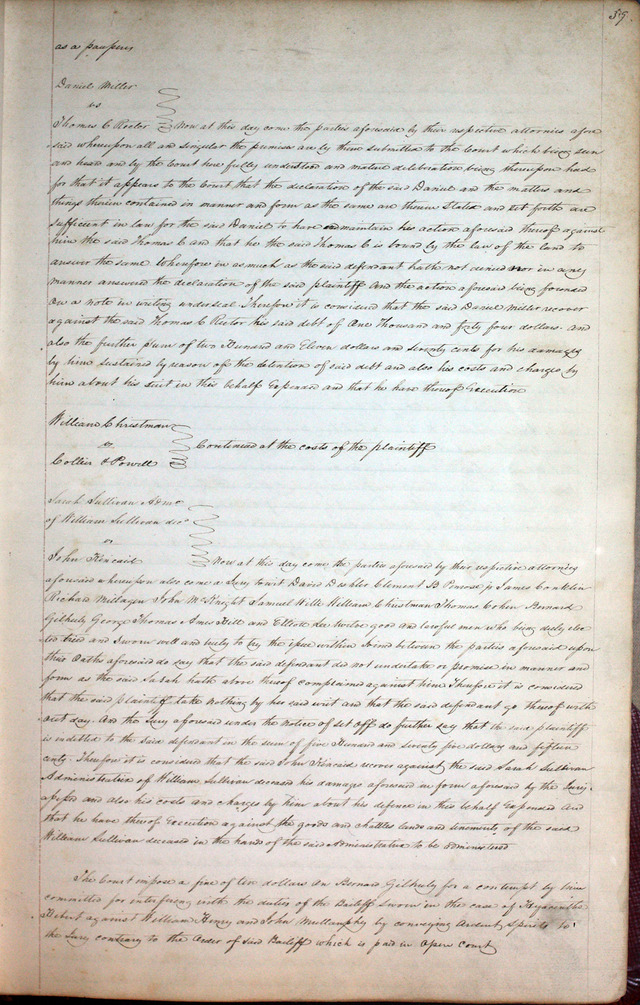 59.
as a paupers
Daniel Miller
vs
Thomas C Rector Now at this day come the parties aforesaid by their respective attornies afore
said whereupon all and singular the premises are by them submitted to the Court which being seen
and heard and by the Court here fully understood and mature deliberation being thereupon had
for that it appears to the Court that the declaration of the said Daniel and the matters and
things therein contained in manner and form as the same are therein Stated and set forth are
sufficient in law for the said Daniel to have and maintain his action aforesaid thereof against
him the said Thomas C and that he the said Thomas C is bound by the law of the land to
answer the same Wherefore in as much as the said defendant hath not denied nor in any
manner answered the declaration of the said plaintiff And the action aforesaid being founded
on a note in writing undersial Therefore it is considered that the said Daniel Miller recover
against the said Thomas C Rector his said debt of One thousand and forty four dollars and
also the further sum of two Hundred and Eleven dollars and seventy cents for his damages
by him sustained by reason of the detention of said debt and also his costs and charges by
him about his suit in this behalf Expended and that he have thereof Execution
William Christman
vs
Continued at the costs of the plaintiff
Collier & Powell
Sarah Sullivan Admx
of William Sullivan decd
vs
John Kincaid Now at this day come the parties aforesaid by their respective attornies
aforesaid whereupon also come a Jury to wit David Deshler Clement B Penrose jr James Conklin
Richard Milligan John McKnight Samuel Wills William Christman Thomas Cohen Bernard
Gilhuly George Thomas Amos Hill and Elliott Lee twelve good and lawful men who being duly elec
ted tried and sworn well and truly to try the issue within joined between the parties aforesaid upon
their Oaths aforesaid do say that the said defendant did not undertake or promise in manner and
form as the said Sarah hath above thereof complained against him Therefore it is considered
that the said plaintiff take nothing by her said writ and that the said defendant go thereof with
out day. And the Jury aforesaid under the notice of set off do further say that the said plaintiff
is indebted to the said defendant in the sum of five Hundred and seventy five dollars and fifteen
cents Therefore it is considered that the said John Kincaid recover against the said Sarah Sullivan
Administratrix of William Sullivan deceased his damages aforesaid in form aforesaid by the Jury
assessed and also his costs and charges by him about his defence in this behalf Expended And
that he have thereof Execution against the goods and chattles lands and tenements of the said
William Sullivan deceased in the hands of the said Administratrix to be administered
The Court impose a fine of ten dollars on Bernard Gilhuly for a contempt by him
committed for interfering with the duties of the Bailiff sworn in the case of Hyacinthe
Hebert against William Henry and John Mullanphy by conveying Ardent Spirits to
the Jury contrary to the Order of said Bailiff which is paid in Open Court